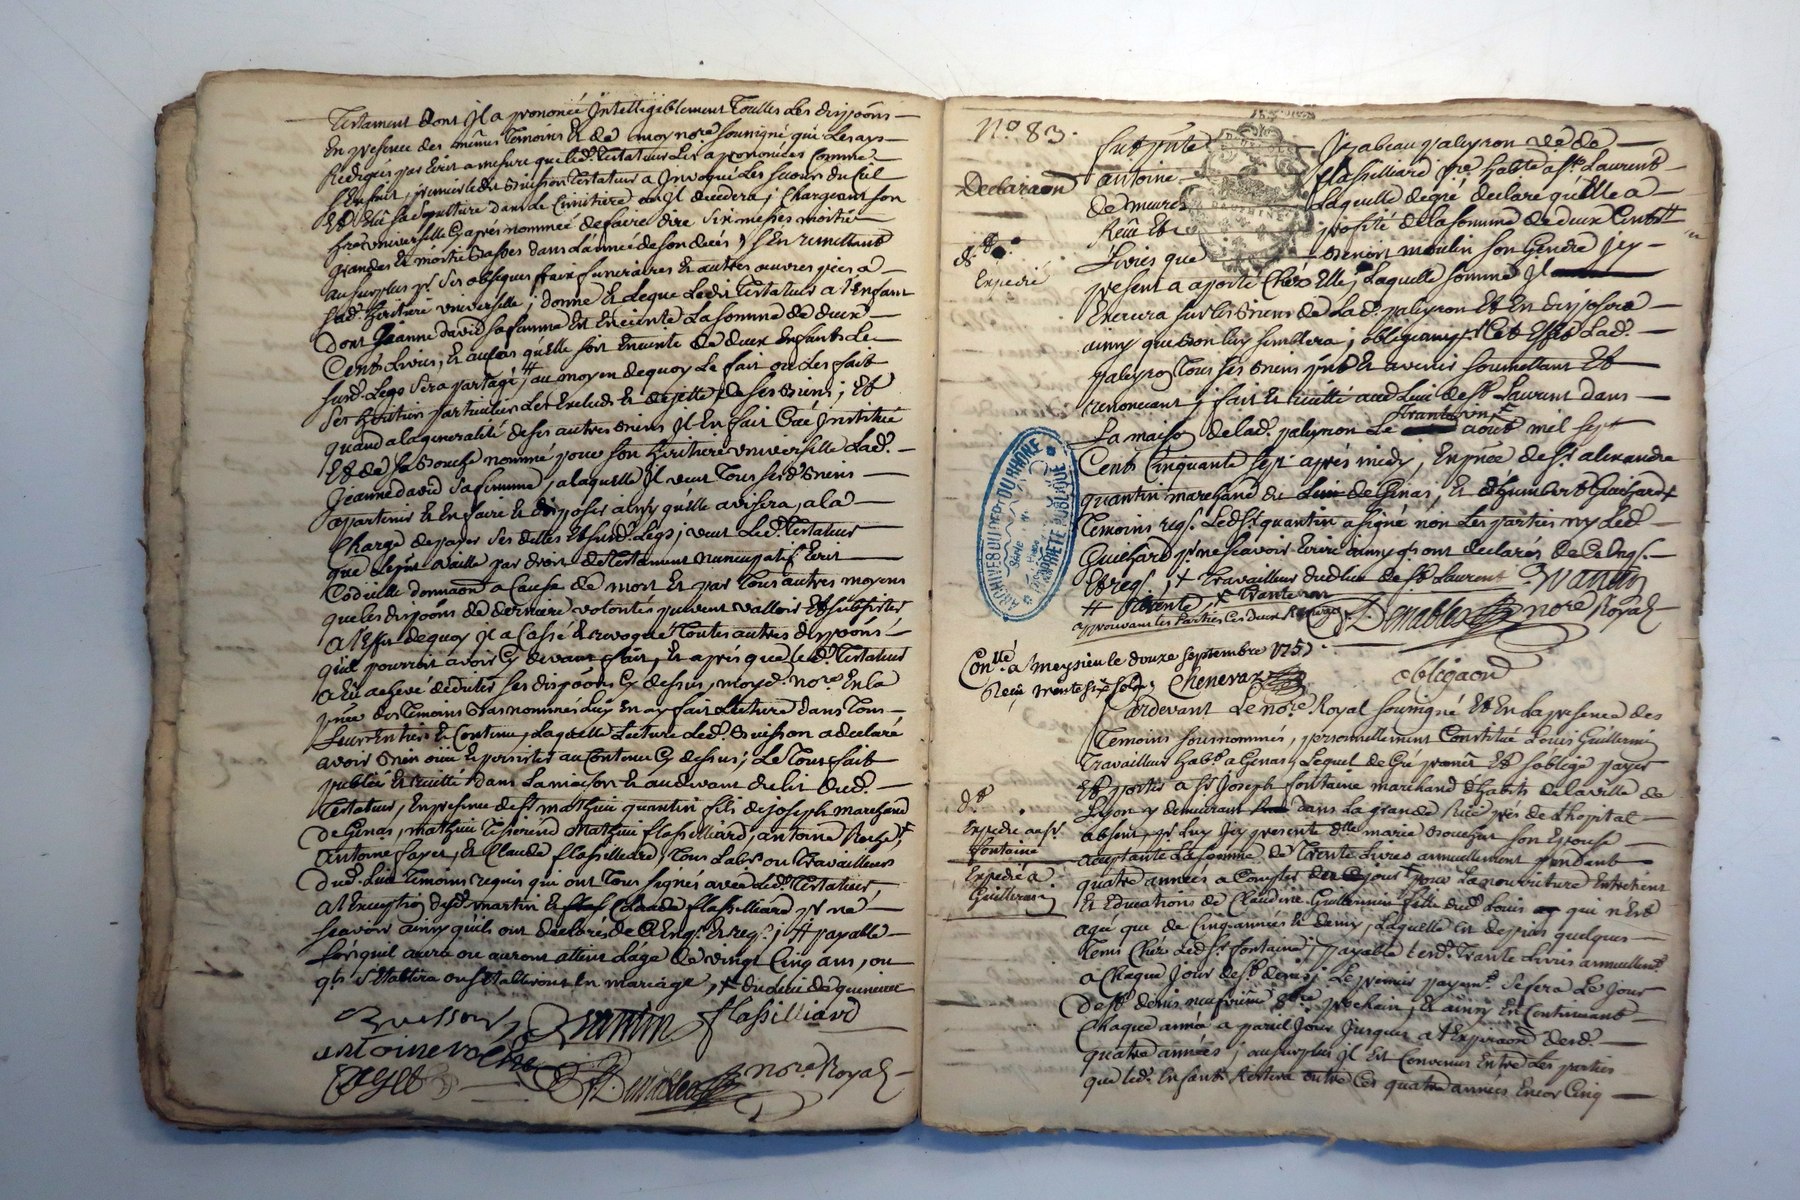 Testament dont Jl a prononcé Jntelligiblement Toutes Les dispoõns
En presence des mêmes Temoins Et de moy no.re soussigné qui Les ay
Redigés par Ecrit a mesure que led. Testateur Les a prononcées comme
s'Ensuit, premierement Buisson Testateur a Jnvoqué Les secours du Ciel
Et Elû sa sepulture dans Le Cimetiere ou Jl decedera ; Chargeant son
universelle Cy après nommée de faire dire six messes moitié
grandes Et moitié Basses dans L'année de son decés ; s'En remettant
au surplus pr. ses obseques fraix funeraires Et autres œuvres pies a
sad. heritiere universelle ; donne Et Legue Ledit Testateur a L'Enfant
dont Jeanne david sa femme Est Enceinte La somme de deux
Cents Livres, Et au Cas qu'Elle soit Enceinte de deux Enfants Le
susd. Legs sera partagé, # au moyen de quoy Le fait ou Les fait
ses heritiers particuliers Les Exclud Et dejette de ses Biens ; Et
quand a la generalité de ses autres Biens Jl En fait Créé Jnstitué
Et de sa Bouche nommé pour son heritiere universelle Lad.
Jeanne david sa femme, a laquelle Jl veut Tous sesd. Biens
apartenir Et En faire Et disposer ainsy qu'Elle avisera, a la
Charge de payer ses dettes Et susd. Legs ; veut Led. Testateur
que Le pnt vaille par droit de Testament nuncupatif Ecrit
Codicille donnaõn a Cause de mort Et par Tous autres moyens
que les dispoõns de derniere volonté peuvent valloir Et subsister
a L'Effet de quoy Jl a Cassé Et revoqué Toutes autres dispoõns
qu'il pourroit avoir Cy devant fait, Et après que led. Testateur
a Eu achevé de dicter ses dispoõns Cy dessus, moyd. no.re En la
pnce des Temoins Bas nommés Luy En ay fait Lecture dans Tout
Leur Entier Et Continu, Laquelle Lecture Led. Buisson a declaré
avoir Bien ouie Et persister au Contenu Cy dessus ; Le Tout fait
publié Et recitté dans La maison Et au devant du Lit dud.
Testateur, En presence de sr. mathieu quantin fils de joseph marchand
de Genas, mathieu mathieu flassilliard, antoine
antoine fayet, Et Claude flassilliard, Tous Labr. ou Travailleurs
dud. Lieu Temoins requis qui ont Tous signés avec Led. Testateur,
a L'Exception desd. martin Et Claude flassilliard pr. ne
scavoir ainsy qu'ils ont declarés de Ce Enq. Et req. ; # payable
Lorsquil aura ou auront atteint L'age de vingt Cinq ans, ou
qls. s'Etablira ou s'Etabliront En mariage,
Buisson Quantin flassilliard
antoine
fayet Demables no.re Royal
N.o 83.
Declaraõn
Expedié
fut pnte Jzabeau paleyron ve. de
antoine flassilliard pre. habte. a St. Laurent
de mures Laquelle de gré declare qu'Elle a
Reçû Et profité de la somme de deux Cents #
Livres que Benoit moulin son Gendre Jcy
present a aporté Chés Elle, Laquelle somme Jl
Exercera sur les Biens de Lad. paleyron Et En disposera
ainsy que Bon luy semblera ; obligeant a Cet Effet Lad.
paleyron Tous ses Biens pnts Et avenir soumettant Et
renonceant ; fait Et recitté aud Lieu de St. Laurent dans
La maison de Lad. paleyron Le Trantiéme aout mil sept
Cent Cinquante sept après midy, En pnce de Sr. alexandre
quantin marchand du Lieu de Genas, Et d'humbert Guichard +
Temoins req. Led Sr. quantin a signé non Les parties ny Led.
Guichard pr. ne scavoir Ecrire ainsy qls. ont declarés de Ce Enq.
Et req. ; + Travailleur dud lieu de St. Laurent Quantin
Demables no.re Royal
Con.lle a Meysieu le douze septembre 1757.
Reçu trente six sols ; Chenevaz
obligaõn
Pardevant Le no.re Royal soussigné Et En La presence des
Temoins sousnommés, personnellement Constitué Louis Guillermin
Travailleur hab.t a Genas, Lequel de Gré promet Et s'oblige payer
Et porter a Sr. Joseph fontaine marchand de la ville de
Lyon y demeurant dans La grande Rüe près de L'hopital
absent, pr. Luy Jcy presente dlle. marie Bouchet son Epouse
acceptante La somme de Trante Livres annuellement pendant
quatre années a Compter de Ce jour pour La nourriture Entretient
Et Educations de Claudine Guillermin fille dud. Louis qui n'Est
agée que de Cinq années Et demy, Laquelle Est depuis quelques
Tems Chez Led. Sr. fontaine ; payable Lesd. Trante Livres annuellemt.
a Chaque Jour de St. denis ; Le premier payemt. se fera Le Jour
de St. denis neufvième 8bre prochain, Et ainsy En Continuant
Chaque année a pareil Jour Jusques a L'Expiraõn desd.
quatre années ; au surplus Jl Est Convenus Entre Les parties
que led. Enfant Restera outre Ces quatre années Encor Cinq
Expedié au sr.
fontaine
Expedié a
Guillermin
ARCHIVES DU DEP. DU RHONE
PROPRIETE PUBLIQUE